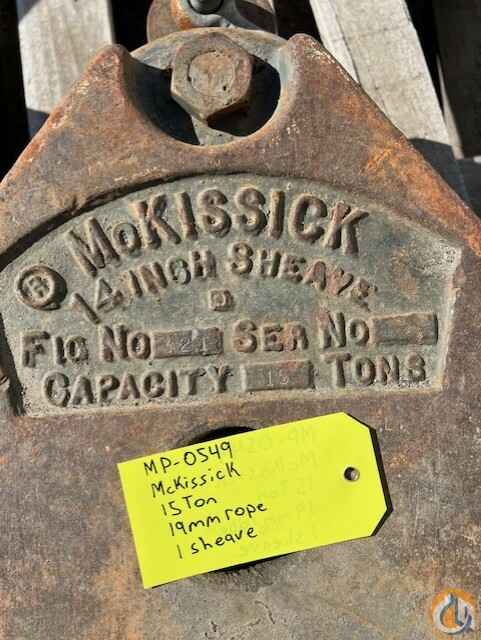 McKISSICK
® 14 INCH SHEAVE
FIG NO 421 SER NO
CAPACITY 15 TONS
MP-0549
McKissick
15 Ton
19mm rope
1 sheave